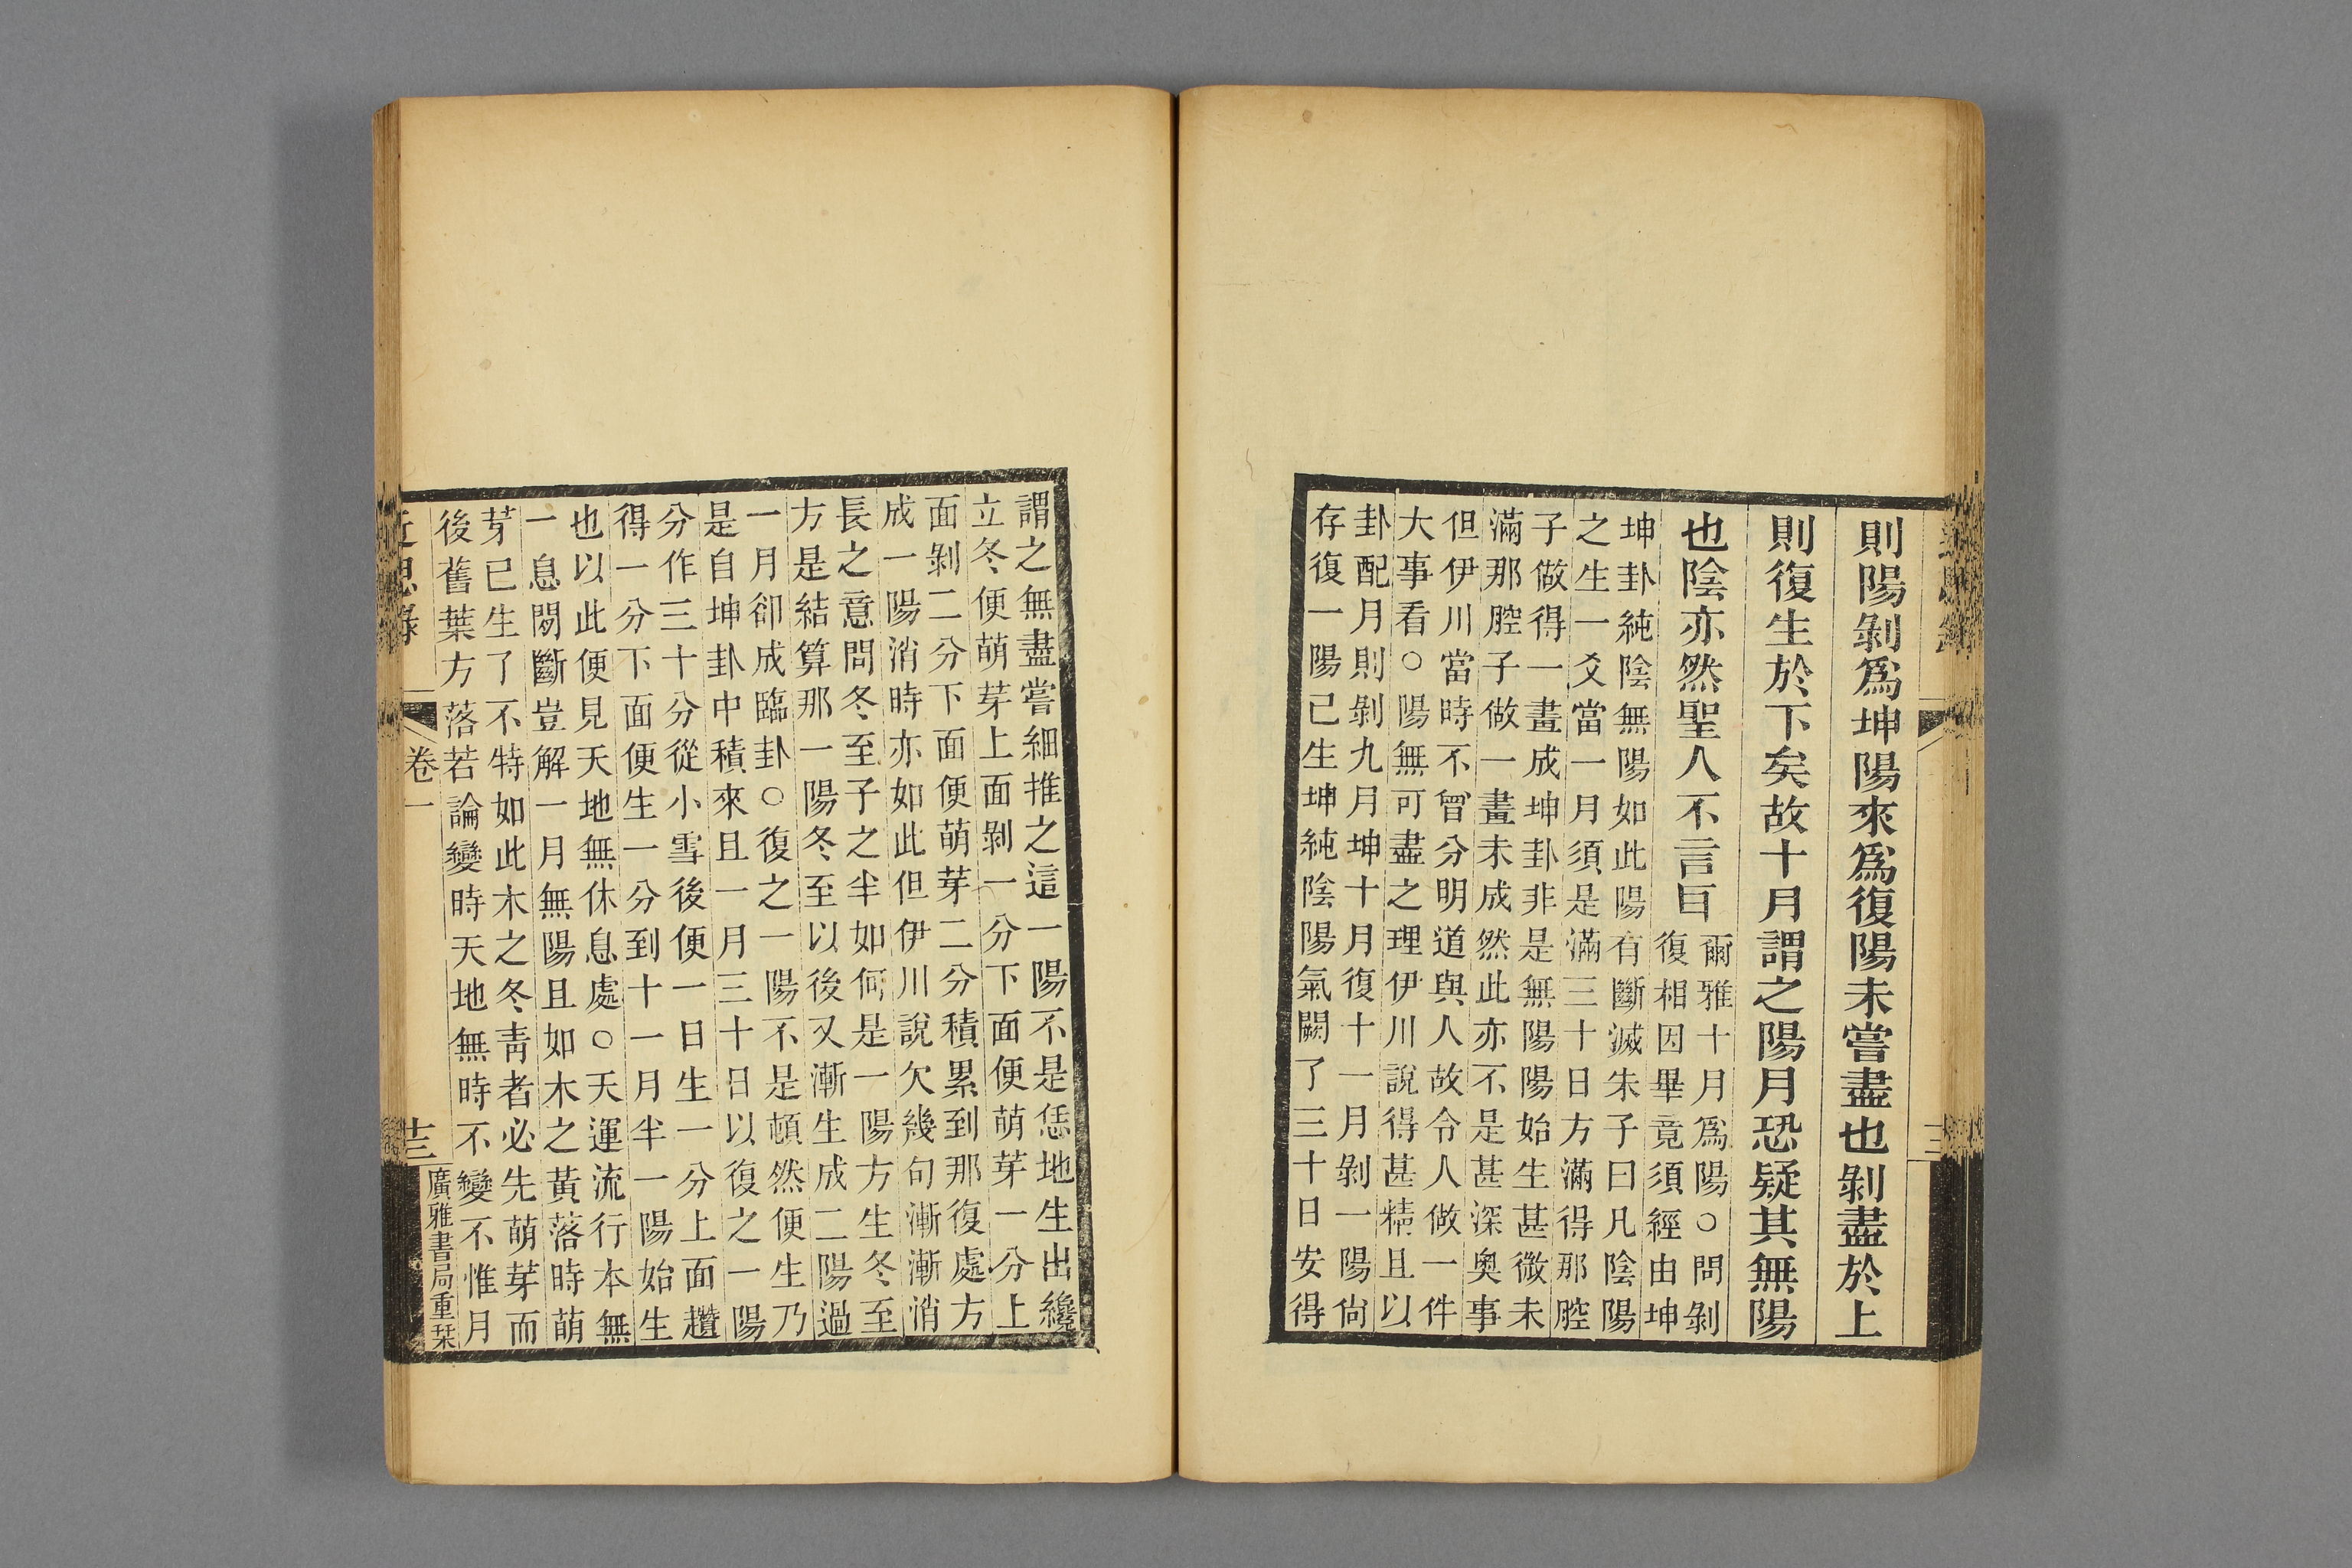 則陽剝爲坤陽來爲復陽未嘗盡也剝盡於上
則復生於下矣故十月謂之陽月恐疑其無陽
也陰亦然聖人不言耳
爾雅十月爲陽○問剝
復相因畢竟須經由坤
坤卦純陰無陽如此陽有斷滅朱子曰凡陰陽
之生一爻當一月須是滿三十日方滿得那腔
子做得一畫成坤卦非是無陽陽始生甚微未
滿那腔子做一畫未成然此亦不是甚深奧事
但伊川當時不曾分明道與人故令人做一件
大事看○陽無可盡之理伊川說得甚精且以
卦配月則剝九月坤十月復十一月剝一陽尙
存復一陽已生坤純陰陽氣闕了三十日安得
謂之無盡嘗細推之這一陽不是恁地生出纔
立冬便萌芽上面剝一分下面便萌芽一分上
面剝二分下面便萌芽二分積累到那復處方
成一陽消時亦如此但伊川說欠幾句漸漸消
長之意問冬至子之半如何是一陽方生冬至
方是結算那一陽冬至以後又漸生成二陽過
一月卻成臨卦○復之一陽不是頓然便生乃
是自坤卦中積來且一月三十日以復之一陽
分作三十分從小雪後便一日生一分上面趲
得一分下面便生一分到十一月半一陽始生
也以此便見天地無休息處○天運流行本無
一息閒斷豈解一月無陽且如木之黃落時萌
芽已生了不特如此木之冬靑者必先萌芽而
後舊葉方落若論變時天地無時不變不惟月
近思錄
卷一
十三
廣雅書局重栞